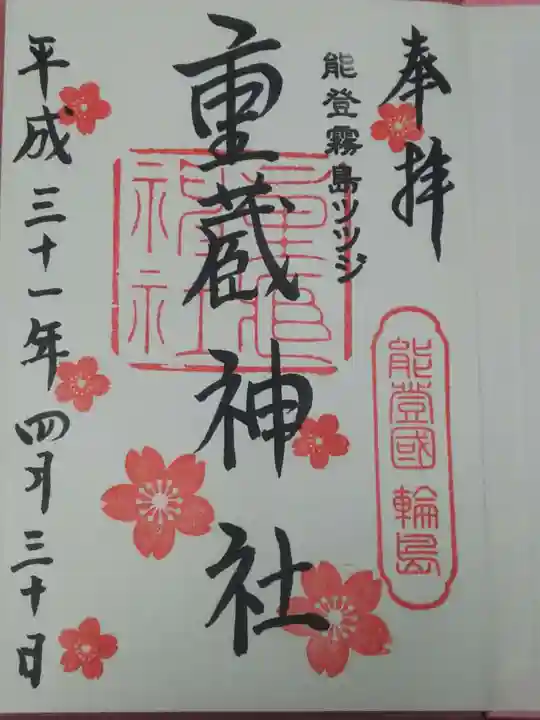 奉拝
能登霧島ツツジ
能登國 輪島
重蔵神社
平成三十一年四月三十日